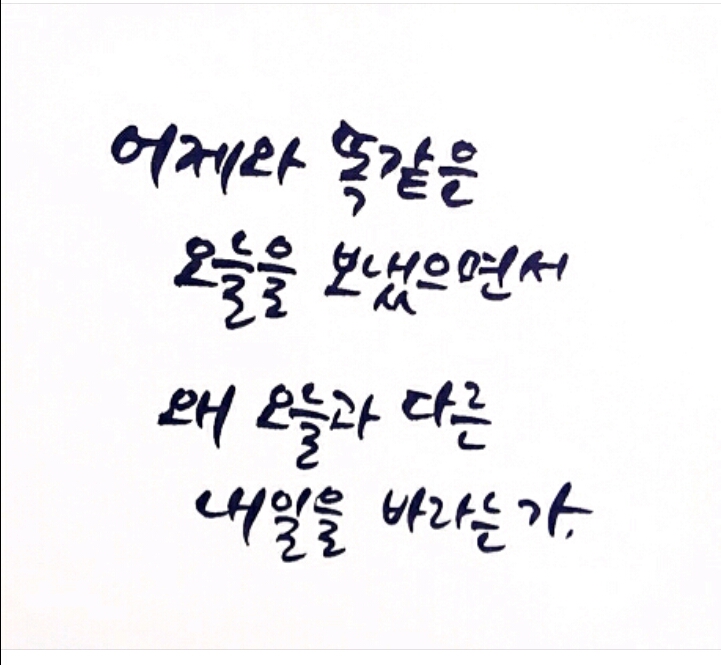 어제와 똑같은
오늘을 보냈으면서
왜 오늘과 다른
내일을 바라는가.